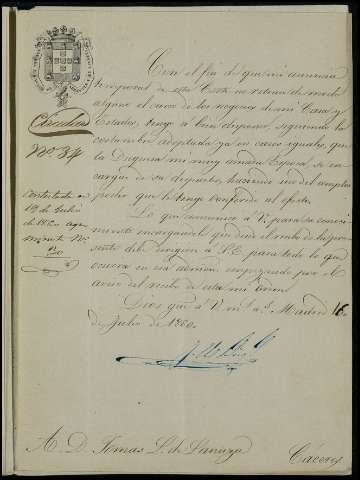 Circular
Nº 34
Contestada en
19 de Julio
de 1860
Con el fin de que mi ausencia
temporal de esta Corte no retrase de modo
alguno el curso de los negocios de mi Casa y
Estados, tengo a bien disponer, siguiendo la
costumbre adoptada ya en casos iguales, que
la Duquesa mi muy amada Esposa, se en
cargue de su despacho, haciendo uso del amplio
poder que la tengo conferido al efecto.
Lo que comunico a V. para su conoci
miento encargandole que desde el recibo de la pre
sente debe dirigirse a S.E. para todo lo que
ocurra en esa admon. empezando por el
aviso del recibo de esta mi orden.
Dios gue. a V. ms. as. Madrid 16
de Julio de 1860.
A D. Tomas L. de
Cáceres